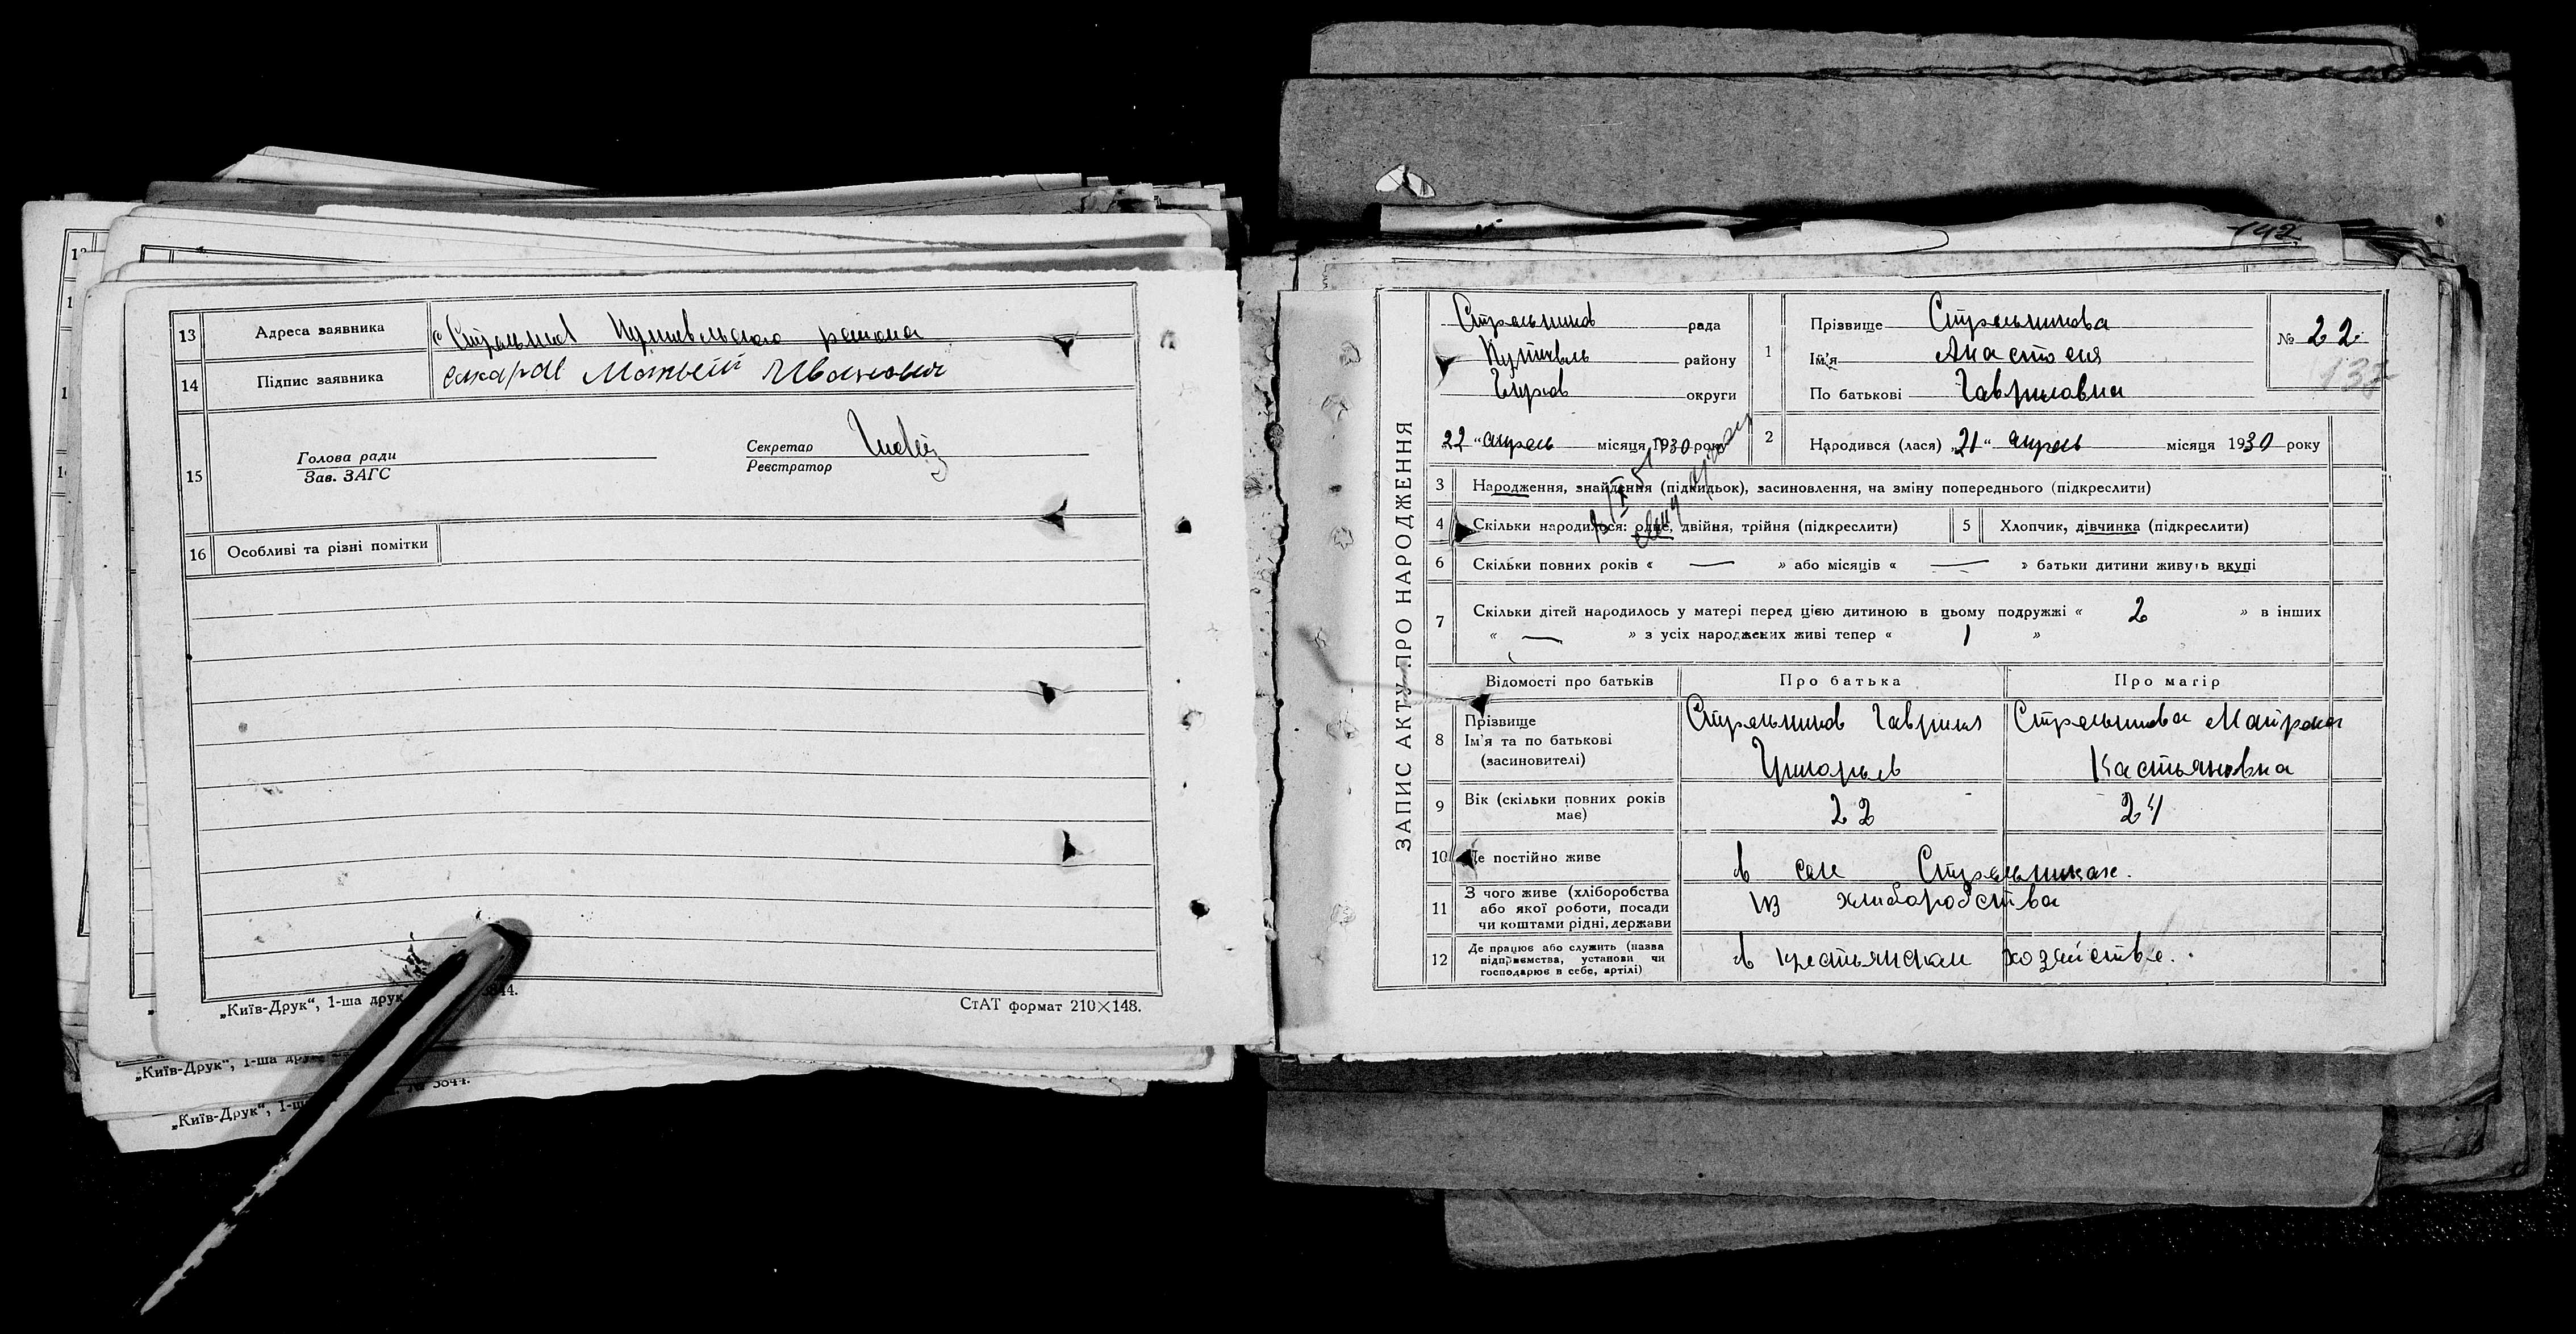 13 Адреса заявника с Стрельник Путивельского района
14 Підпис заявника Макаров Матвей Иванович
15 Голова ради
Зав. ЗАГС
Секретар
Реєстратор
16 Особливі та різні помітки
„Київ-Друк“, 1-ша друк 3844.
СтАТ формат 210×148.
„Київ-Друк“, 1-ша друк
№ 3844.
„Київ-Друк“, 1-ш
142
ЗАПИС АКТУ ПРО НАРОДЖЕННЯ
Стрельников рада
Путивль району
округи
22 “ апрель місяця 1930 року
1 Прізвище Стрельникова
Ім'я Анастосия
По батькові Гавриловна
№ 22
132
2 Народився (лася) „21“ апрель місяця 1930 року
3 Народження, знайдення (підкидьок), засиновлення, на зміну попереднього (підкреслити)
4 Скільки народилося: одне, двійня, трійня (підкреслити)
5 Хлопчик, дівчинка (підкреслити)
6 Скільки повних років « — » або місяців « — » батьки дитини живуть вкупі
7 Скільки дітей народилось у матері перед цією дитиною в цьому подружжі « 2 » в інших
« — » з усіх народжених живі тепер « 1 »
Відомості про батьків Про батька Про матір
8 Прізвище
Ім'я та по батькові
(засиновителі)
Стрельников Гаврил
Григорьев
Стрельникова Матрена
Кастьяновна
9 Вік (скільки повних років має) 22 24
10 Де постійно живе в селе Стрельниках.
11 З чого живе (хліборобства
або якої роботи, посади
чи коштами рідні, держави
из хлибаробства
12 Де працює або служить (назва
підприємства, установи чи
господарює в себе, артілі)
в крестьянском хозяйстве.